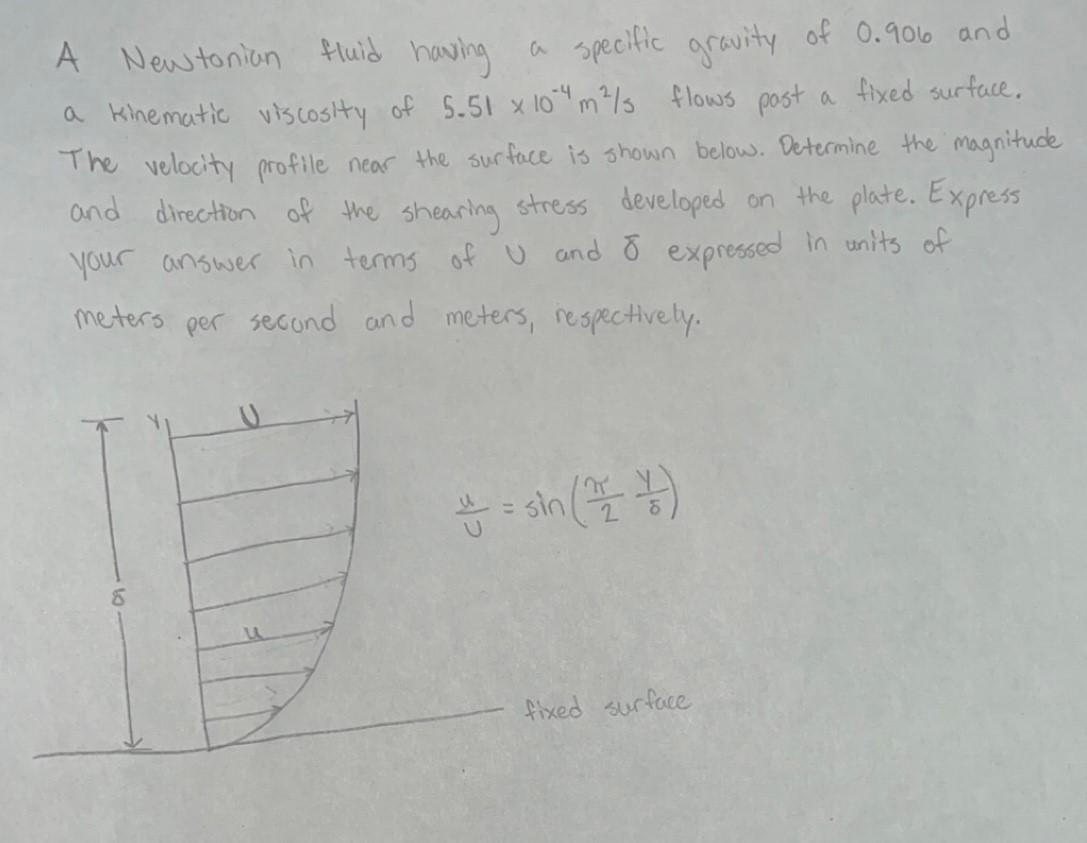 A Newtonian fluid having a specific gravity of 0.906 and
a kinematic viscosity of 5.51 x 10⁻⁴ m²/s flows past a fixed surface.
The velocity profile near the surface is shown below. Determine the magnitude
and direction of the shearing stress developed on the plate. Express
your answer in terms of U and δ expressed in units of
meters per second and meters, respectively.
y U
u/U = sin(π/2 y/δ)
δ
u
fixed surface